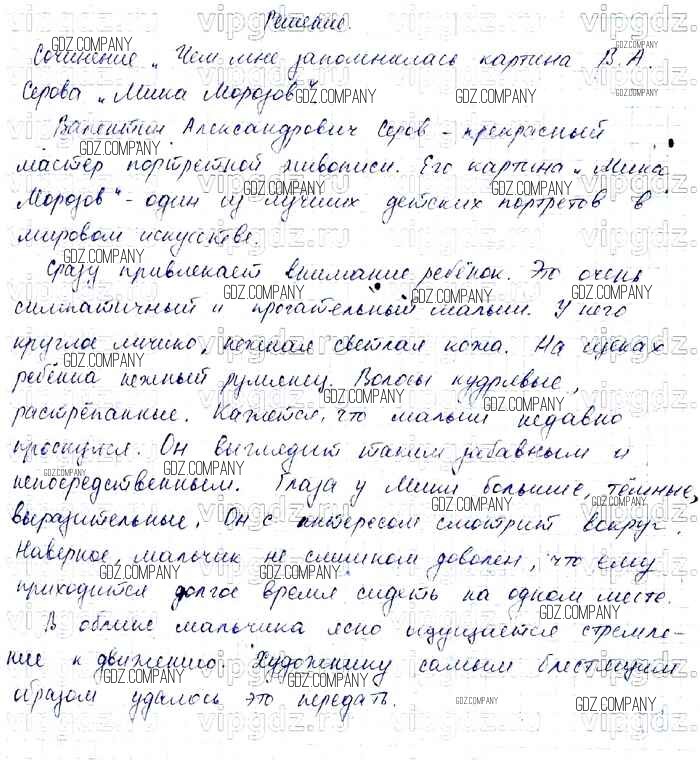 Решение.
Сочинение „Чем мне запомнилась картина В. А.
Серова „Мика Морозов“.
Валентин Александрович Серов - прекрасный
мастер портретной живописи. Его картина „Мика
Морозов“ - один из лучших детских портретов в
мировом искусстве.
Сразу привлекает внимание ребёнок. Это очень
симпатичный и трогательный малыш. У него
круглое личико, нежная светлая кожа. На щеках
ребёнка нежный румянец. Волосы кудрявые,
растрёпанные. Кажется, что малыш недавно
проснулся. Он выглядит таким забавным и
непосредственным. Глаза у Мики большие, тёмные,
выразительные. Он с интересом смотрит вокруг.
Наверное, мальчик не слишком доволен, что ему
приходится долгое время сидеть на одном месте.
В облике мальчика ясно ощущается стремле-
ние к движению. Художнику самым блестящим
образом удалось это передать.